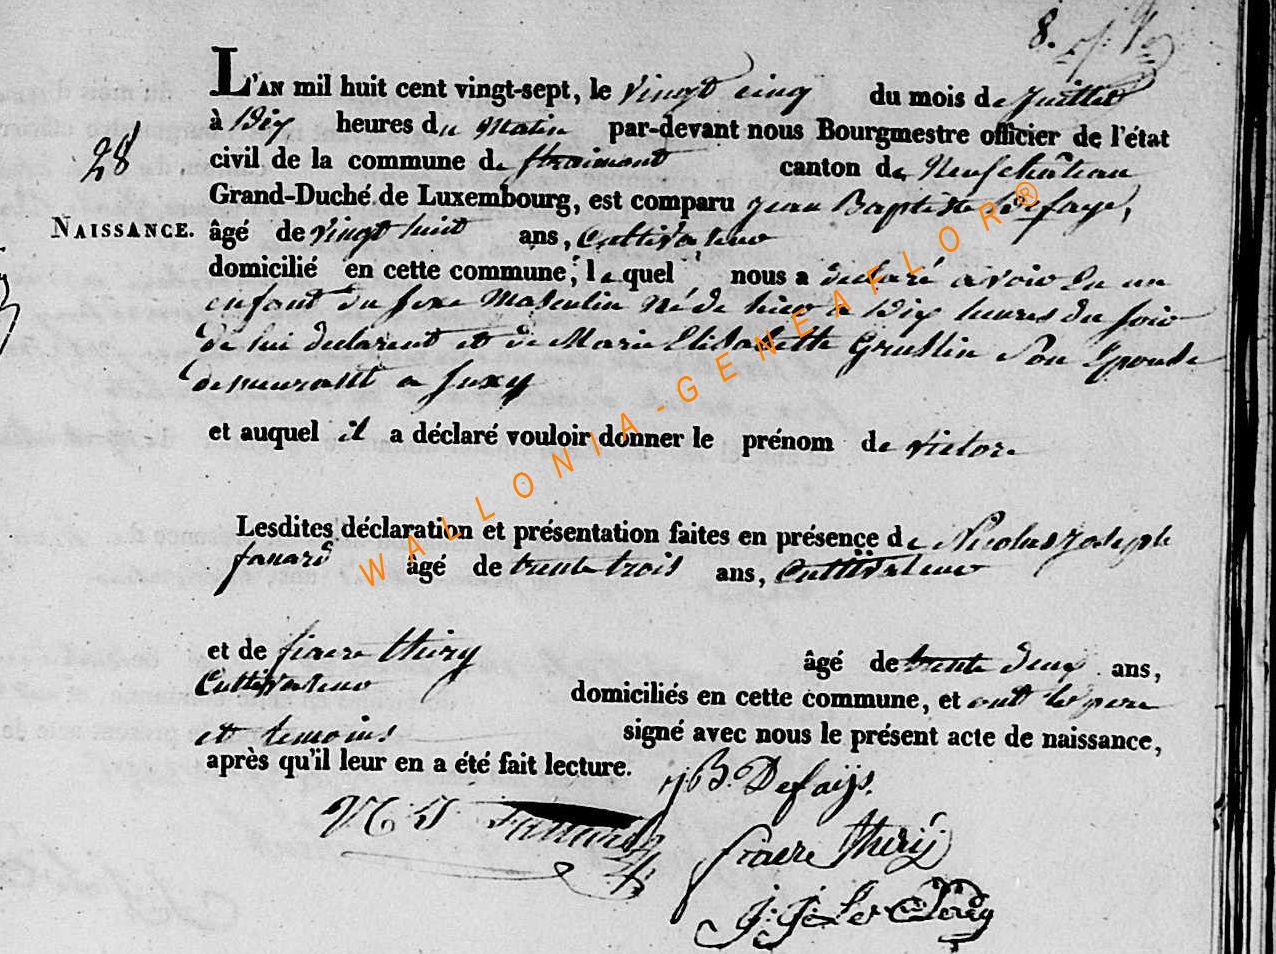 8.
L'AN mil huit cent vingt-sept, le vingt cinq du mois de Juillet
à Dix heures du Matin par-devant nous Bourgmestre officier de l'état
28
civil de la commune de straimont canton de Neufchâteau
Grand-Duché de Luxembourg, est comparu jean Baptiste Defays,
NAISSANCE.
âgé de vingt huit ans, Cultivateur
domicilié en cette commune, lequel nous a declaré avoir eu un
enfant du sexe Masculin Né de hier a Dix heures du soir
de lui declarent et de Marie Elisabette Gruslin Son Epouse
demeurant a suxy
et auquel il a déclaré vouloir donner le prénom de victor
Lesdites déclaration et présentation faites en présence de Nicolas joseph
fanard âgé de trente trois ans, Cultivateur
et de fiacre thiry âgé de trente deux ans,
Cultivateur domiciliés en cette commune, et ont les pere
et temoins signé avec nous le présent acte de naissance,
après qu'il leur en a été fait lecture. JB. Defaÿs.
N. J. Fanard
fiacre thirÿ
J: J: Le Clercq
WALLONIA-GENEAFLOR®